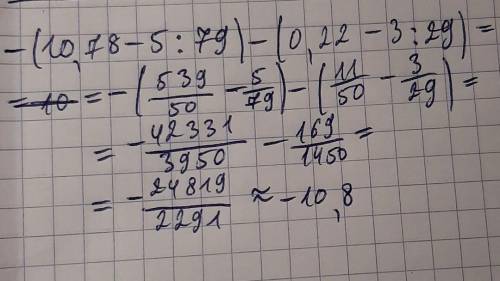 -(10,78-5:79)-(0,22-3:29)=
=10=-(539/50-5/79)-(11/50-3/29)=
=-42331/3950-169/1450=
=-24819/2291≈-10,8